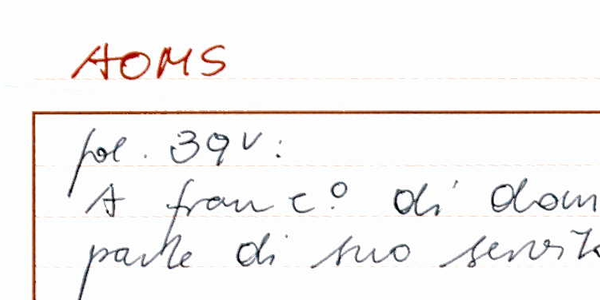 AOMS
fol. 39v:
A franc.º di dom
parte di suo servit